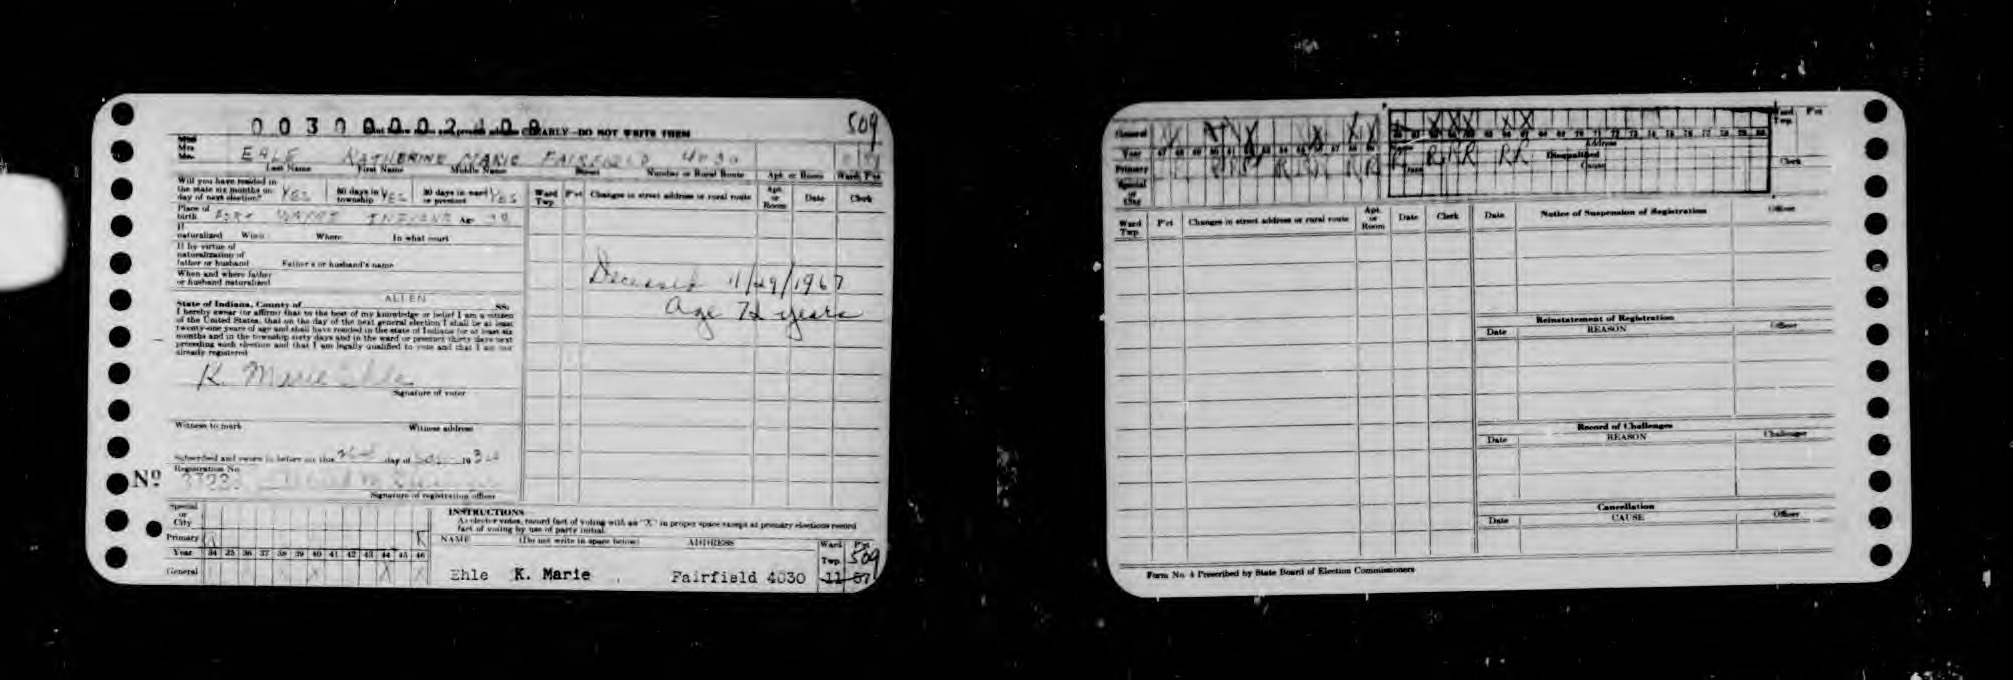 509
00300002400
CLEARLY—DO NOT WRITE THEM
Miss
Mrs.
Mr.
EHLE KATHERINE MARIE FAIRFIELD 4030
Last Name First Name Middle Name Street Number or Rural Route Apt. or Room Ward P'ct
Will you have resided in
the state six months on
day of next election? YES
60 days in
township YES
30 days in ward
or precinct YES
Place of
birth FORT WAYNE INDIANA Age
If
naturalized When Where In what court
If by virtue of
naturalization of
father or husband Father's or husband's name
When and where father
or husband naturalized
State of Indiana, County of ALLEN ss:
I hereby swear (or affirm) that to the best of my knowledge or belief I am a citizen
of the United States, that on the day of the next general election I shall be at least
twenty-one years of age and shall have resided in the state of Indiana for at least six
months and in the township sixty days and in the ward or precinct thirty days next
preceding such election and that I am legally qualified to vote and that I am not
already registered
K. Marie Ehle
Signature of voter
Witness to mark Witness address
Subscribed and sworn to before me this day of 19
Registration No.
Nº
Signature of registration officer
Ward
Twp. P'ct Changes in street address or rural route Apt.
or
Room Date Clerk
Deceased 11/29/1967
Age 72 years
Special
or
City
Primary R
Year 34 35 36 37 38 39 40 41 42 43 44 45 46
General X X X
INSTRUCTIONS
As elector votes, record fact of voting with an "X" in proper space except at primary elections record
fact of voting by use of party initial.
NAME (Do not write in space below) ADDRESS Ward
Twp. P'ct
509
Ehle K. Marie Fairfield 4030 11 57
General
Year 47 48 49 50 51 52 53 54 55 56 57 58 59
Primary
Special
or
City
68 69 70 71 72 73 74 75 76 77 78 79 80
Address
Disqualified
Cause
Ward
Twp. P'ct
Clerk
Ward
Twp. P'ct Changes in street address or rural route Apt.
or
Room Date Clerk
Date Notice of Suspension of Registration Officer
Reinstatement of Registration
Date REASON Officer
Record of Challenges
Date REASON Challenger
Cancellation
Date CAUSE Officer
Form No. 4 Prescribed by State Board of Election Commissioners